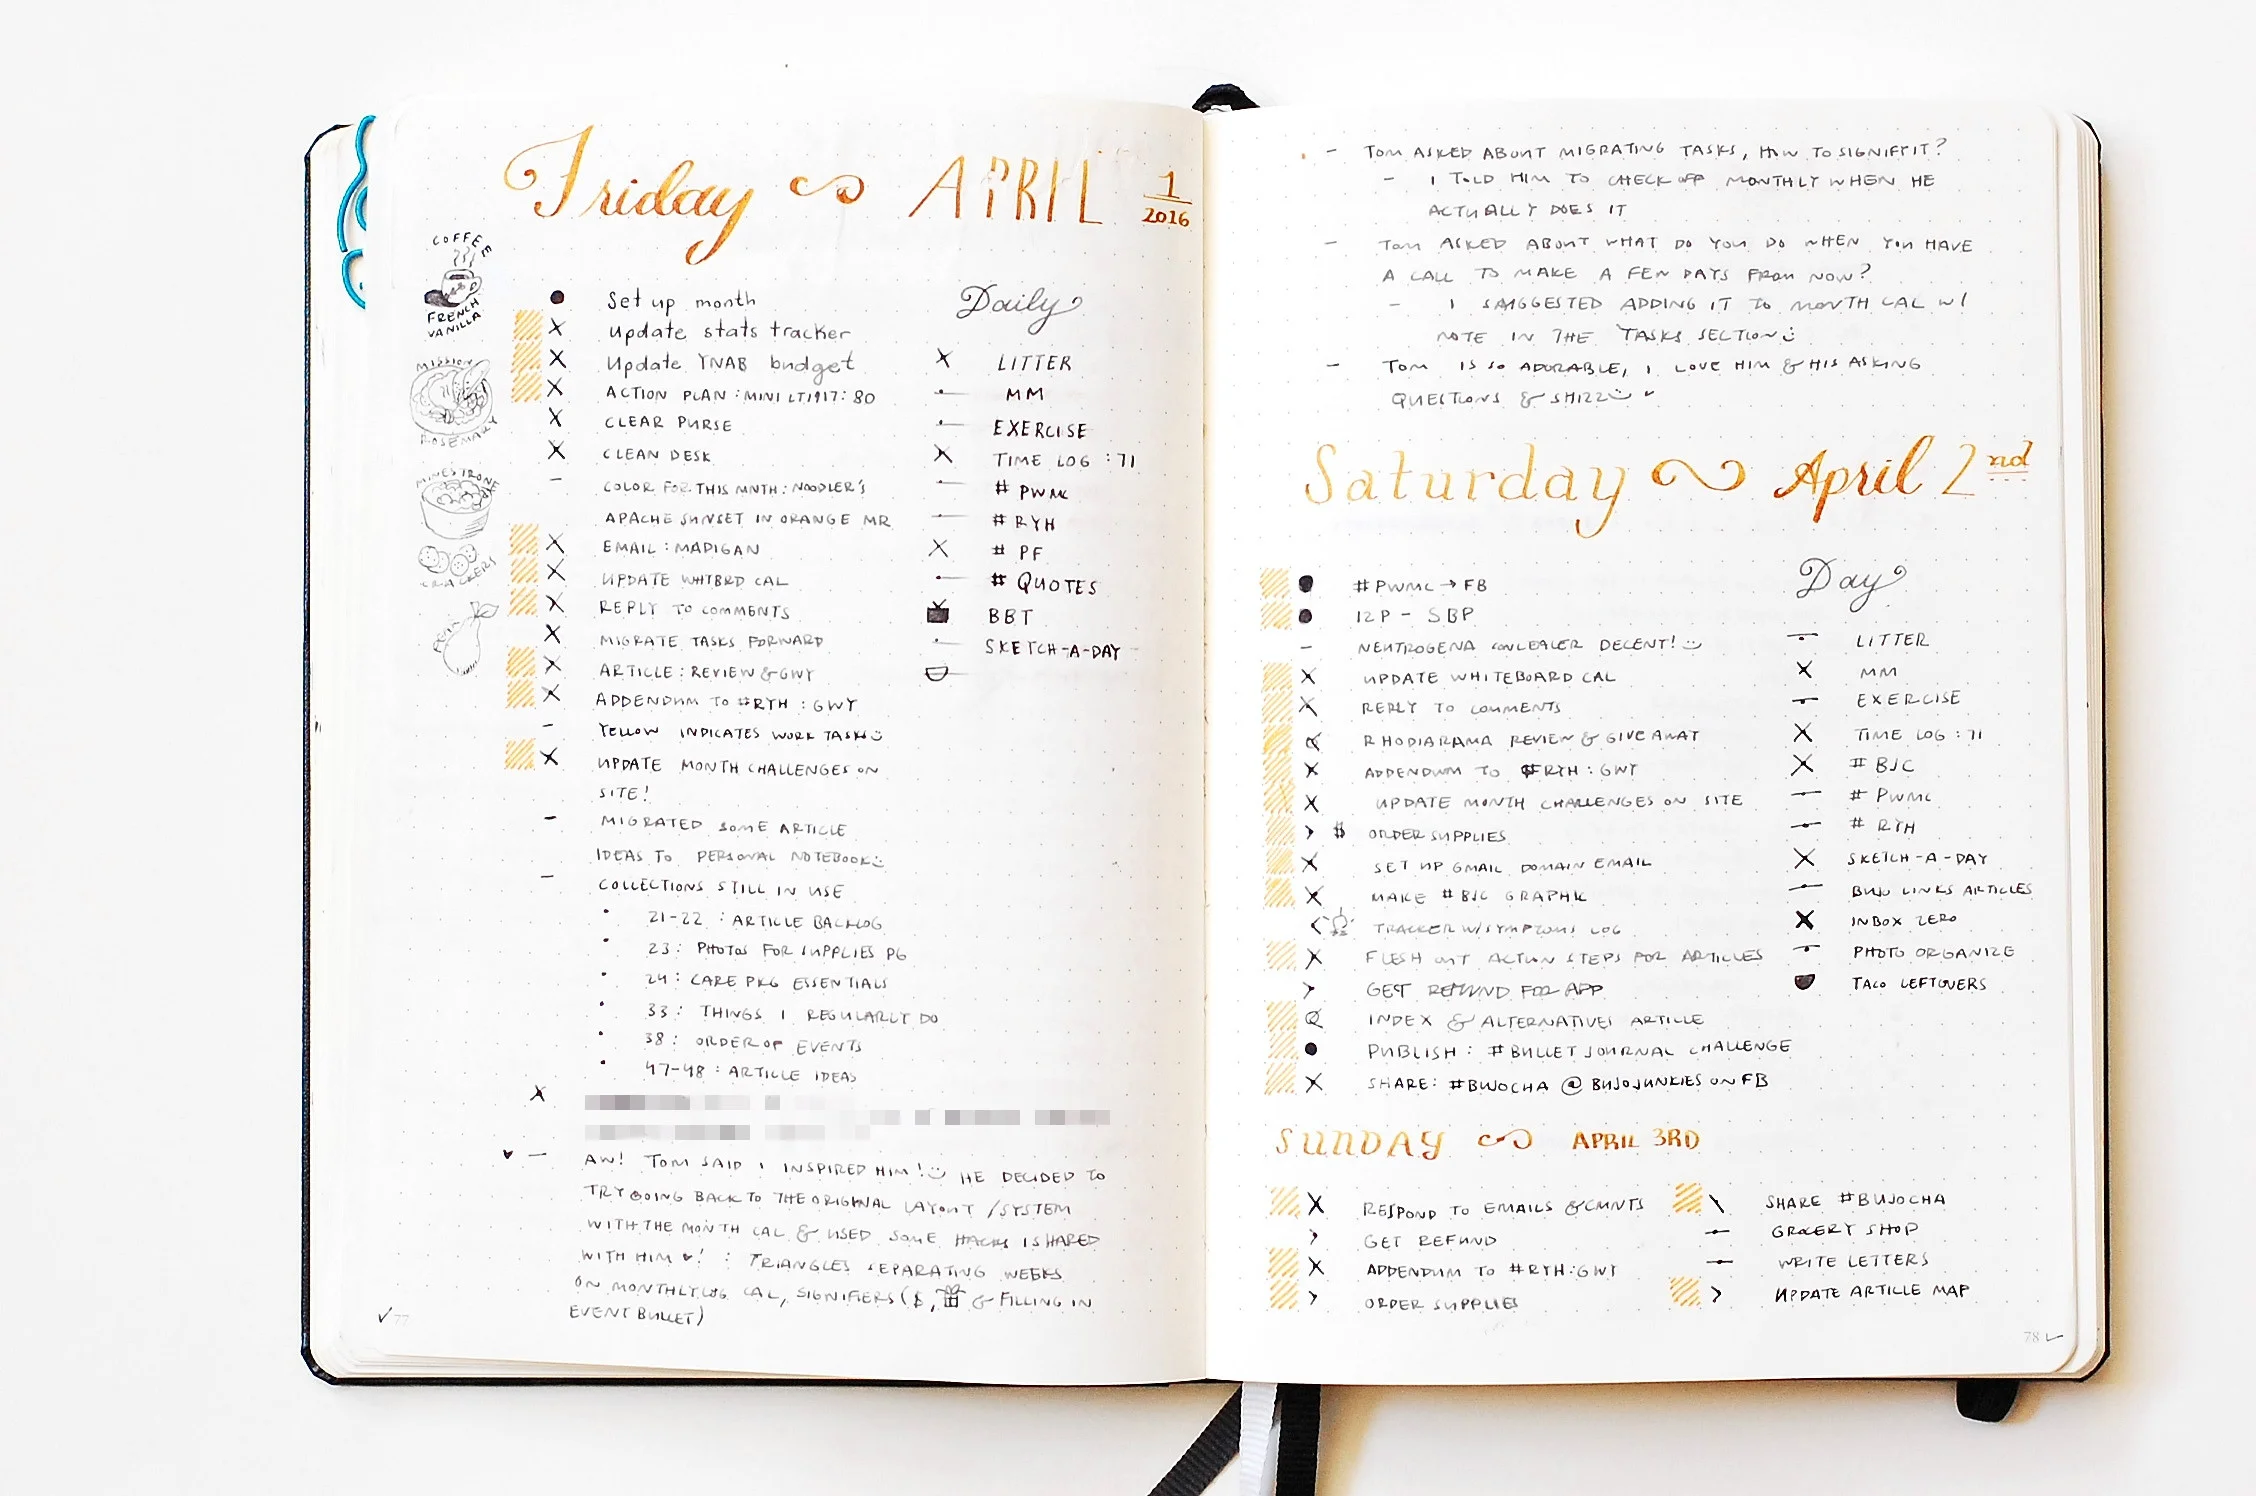 Friday APRIL 1
2016
COFFEE
FRENCH
VANILLA
MISSION
ROSEMARY
MINESTRONE
CRACKERS
PEAR
Set up month
update stats tracker
update YNAB budget
ACTION PLAN: MINI LT1917: 80
CLEAR PURSE
CLEAN DESK
- COLOR FOR THIS MNTH: NOODLER'S
APACHE SUNSET IN ORANGE MR
EMAIL: MADIGAN
UPDATE WHTBRD CAL
REPLY TO COMMENTS
MIGRATE TASKS FORWARD
ARTICLE: REVIEW & GWY
ADDENDUM TO #RYH: GWY
- YELLOW INDICATES WORK TASKS
UPDATE MONTH CHALLENGES ON
SITE!
- MIGRATED SOME ARTICLE
IDEAS TO PERSONAL NOTEBOOK
- COLLECTIONS STILL IN USE
21-22: ARTICLE BACKLOG
23: PHOTOS FOR SUPPLIES PG
24: CARE PKG ESSENTIALS
33: THINGS I REGULARLY DO
38: ORDER OF EVENTS
47-48: ARTICLE IDEAS
Daily
LITTER
MM
EXERCISE
TIME LOG: 71
# PWMC
# RYH
# PF
# QUOTES
BBT
SKETCH-A-DAY
♥ - AW! TOM SAID I INSPIRED HIM! HE DECIDED TO
TRY GOING BACK TO THE ORIGINAL LAYOUT/SYSTEM
WITH THE MONTH CAL & USED SOME HACKS I SHARED
WITH HIM ♥! : TRIANGLES SEPARATING WEEKS
ON MONTHLY LOG CAL, SIGNIFIERS ($, & FILLING IN
EVENT BULLET)
77
- TOM ASKED ABOUT MIGRATING TASKS, HOW TO SIGNIFY IT?
- I TOLD HIM TO CHECK OFF MONTHLY WHEN HE
ACTUALLY DOES IT
- TOM ASKED ABOUT WHAT DO YOU DO WHEN YOU HAVE
A CALL TO MAKE A FEW DAYS FROM NOW?
- I SUGGESTED ADDING IT TO MONTH CAL W/
NOTE IN THE TASKS SECTION
- TOM IS SO ADORABLE, I LOVE HIM & HIS ASKING
QUESTIONS & SHIZZ ♥
Saturday April 2nd
#PWMC → FB
12P - SBP
- NEUTROGENA CONCEALER DECENT!
UPDATE WHITEBOARD CAL
REPLY TO COMMENTS
RHODIARAMA REVIEW & GIVEAWAY
ADDENDUM TO #RYH: GWY
UPDATE MONTH CHALLENGES ON SITE
> $ ORDER SUPPLIES
SET UP GMAIL DOMAIN EMAIL
MAKE #BJC GRAPHIC
< TRACKER W/SYMPTOMS LOG
FLESH OUT ACTION STEPS FOR ARTICLES
> GET REFUND FOR APP
INDEX & ALTERNATIVES ARTICLE
PUBLISH: #BULLET JOURNAL CHALLENGE
SHARE: #BUJOCHA @ BUJOJUNKIES ON FB
Day
LITTER
MM
EXERCISE
TIME LOG: 71
# BJC
# PWMC
# RYH
SKETCH-A-DAY
BUJO LINKS ARTICLES
INBOX ZERO
PHOTO ORGANIZE
TACO LEFTOVERS
SUNDAY APRIL 3RD
RESPOND TO EMAILS & CMNTS
> GET REFUND
ADDENDUM TO #RYH: GWY
> ORDER SUPPLIES
\ SHARE #BUJOCHA
GROCERY SHOP
WRITE LETTERS
> UPDATE ARTICLE MAP
78